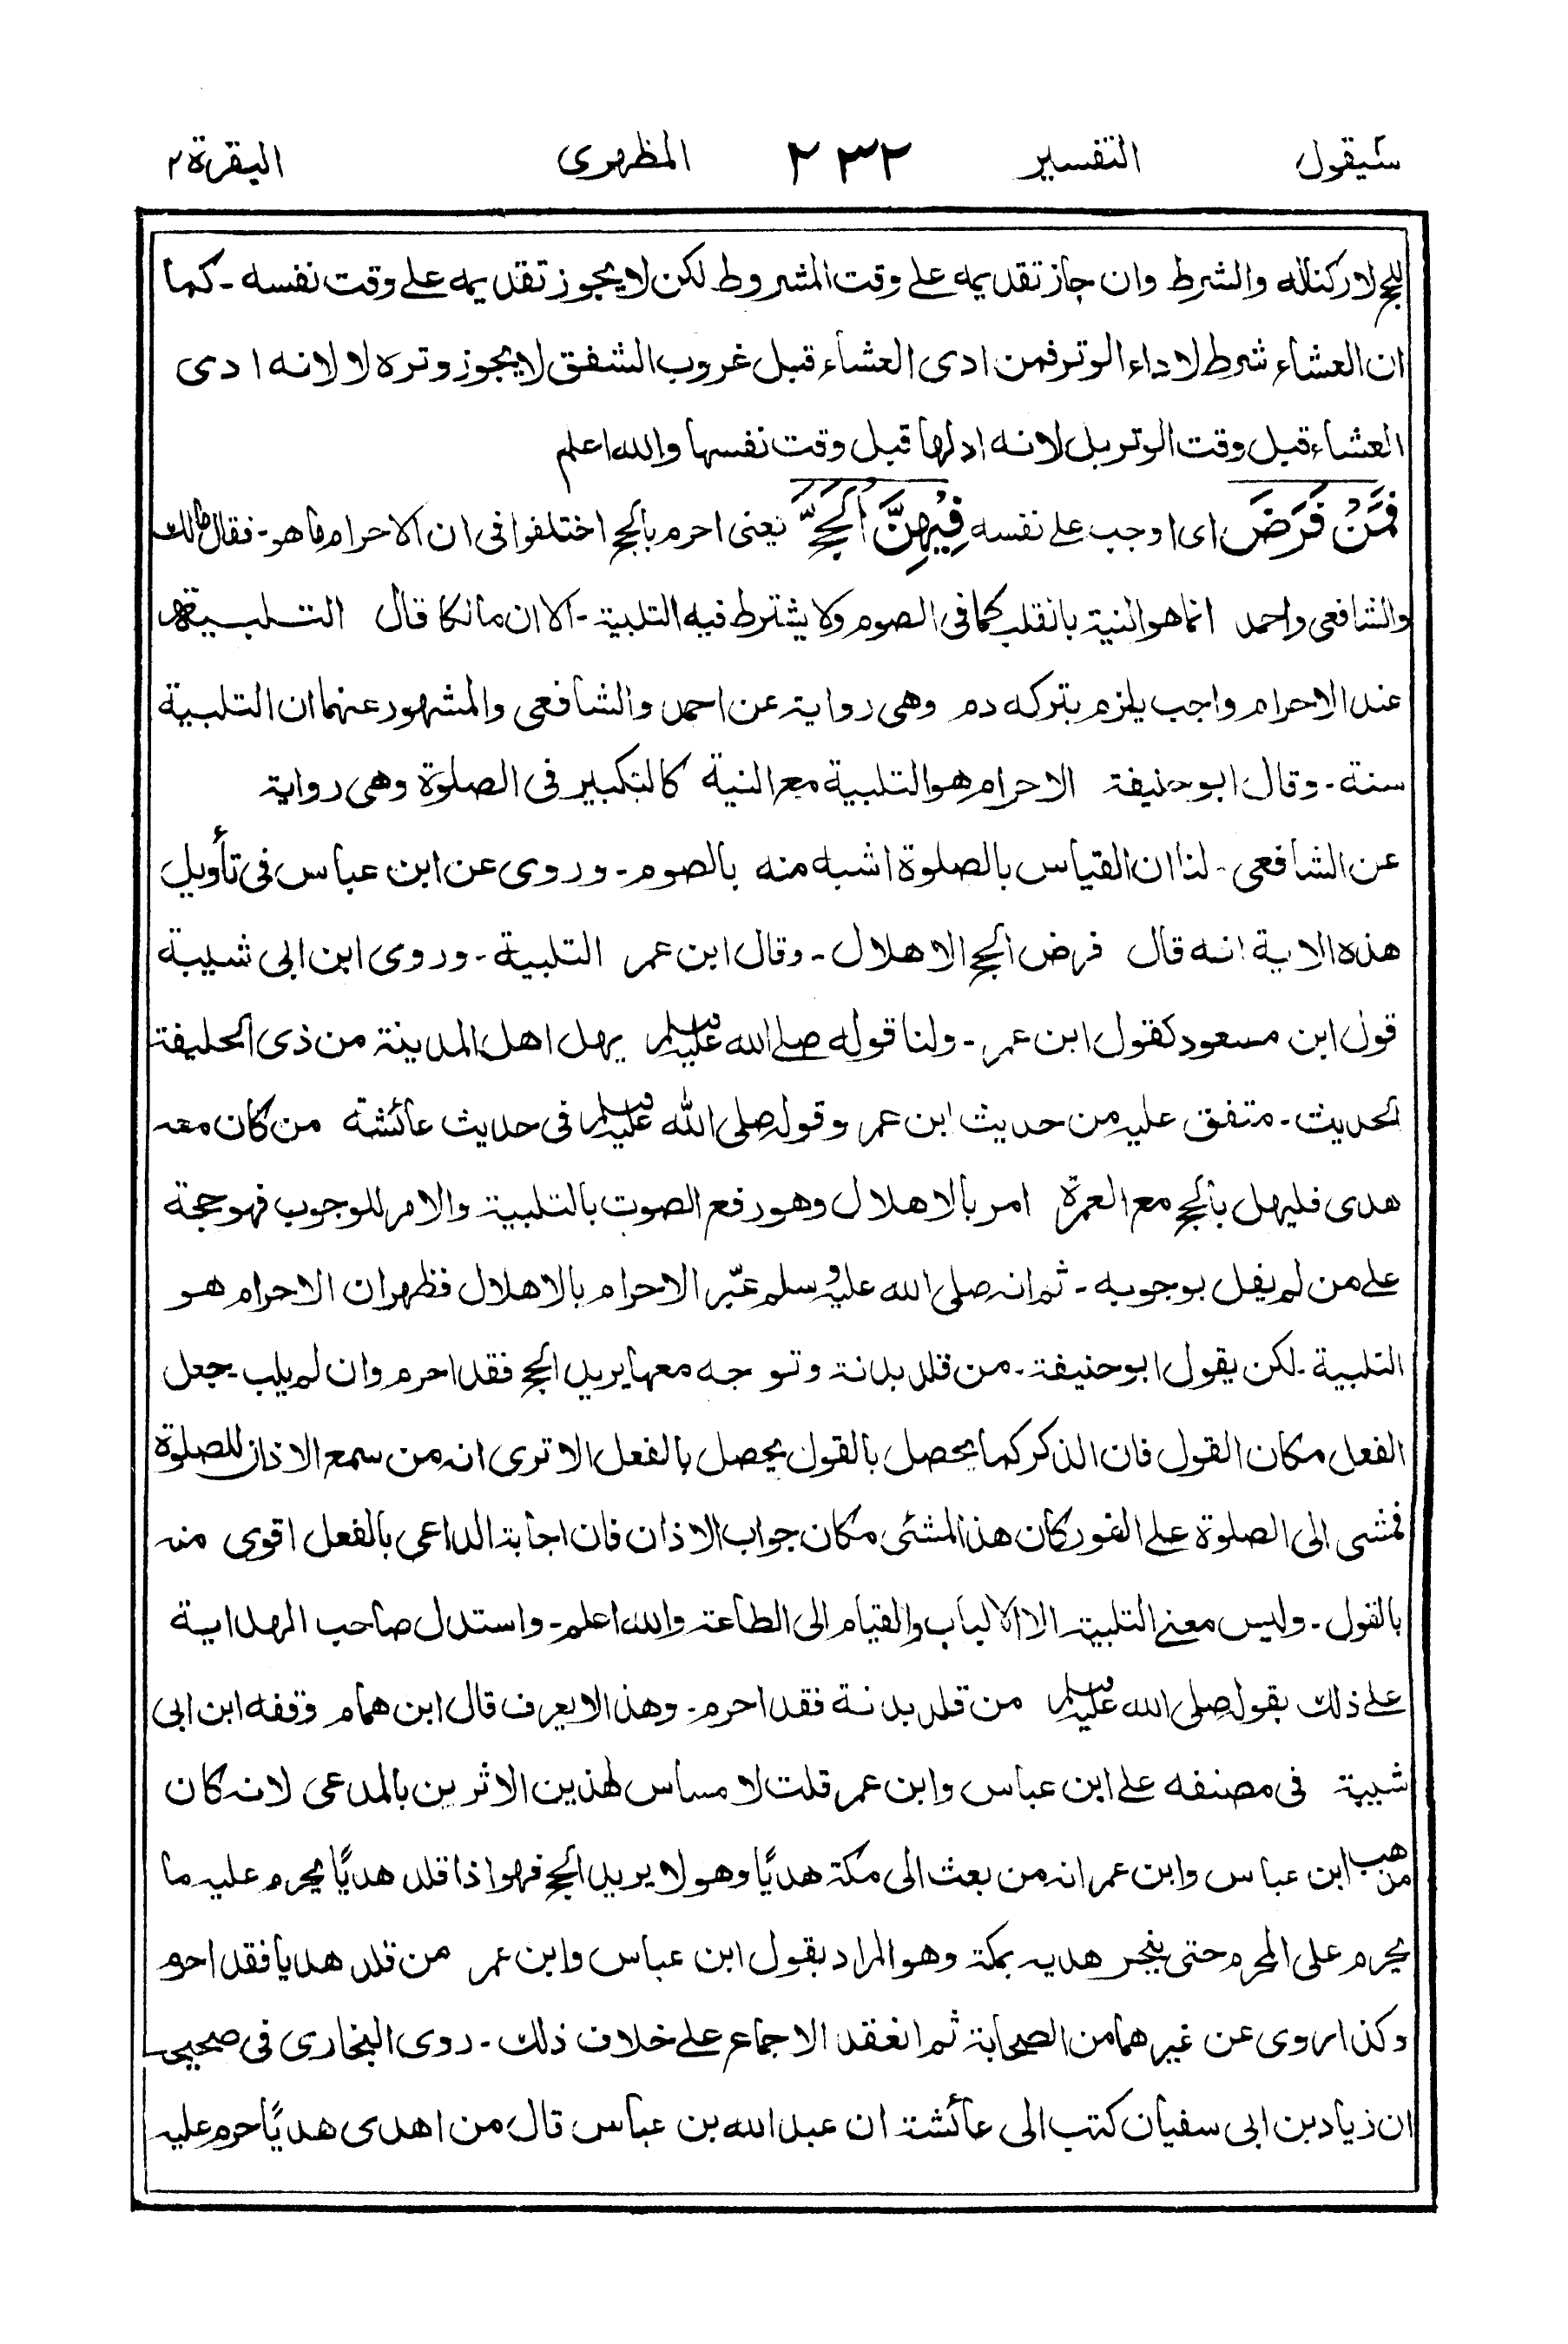 سيقول التفسير ٢٣٢ المظهرى البقرة ٢
للحج لا ركنا له والشرط وان جاز تقديمه على وقت المشروط لكن لا يجوز تقديمه على وقت نفسه - كما
ان العشاء شرط لاداء الوتر فمن ادى العشاء قبل غروب الشفق لا يجوز وتره لا لانه ادى
العشاء قبل وقت الوتر بل لانه ادلها قبل وقت نفسها والله اعلم
فَمَنْ فَرَضَ اى اوجب على نفسه فِيْهِنَّ الْحَجَّ يعنى احرم بالحج اختلفوا فى ان الاحرام ما هو - فقال مالك
والشافعى واحمد انما هو النية بالقلب كما فى الصوم ولا يشترط فيه التلبية - الا ان مالكا قال التلبية
عند الاحرام واجب يلزم بتركه دم وهى رواية عن احمد والشافعى والمشهور عنهما ان التلبية
سنة - وقال ابو حنيفة الاحرام هو التلبية مع النية كالتكبير فى الصلوة وهى رواية
عن الشافعى - لنا ان القياس بالصلوة اشبه منه بالصوم - وروى عن ابن عباس فى تأويل
هذه الاية انه قال فرض الحج الاهلال - وقال ابن عمر التلبية - وروى ابن ابى شيبة
قول ابن مسعود كقول ابن عمر - ولنا قوله صلى الله عليه وسلم يهل اهل المدينة من ذى الحليفة
الحديث - متفق عليه من حديث ابن عمر وقوله صلى الله عليه وسلم فى حديث عائشة من كان معه
هدى فليهل بالحج مع العمرة امر بالاهلال وهو رفع الصوت بالتلبية والامر للوجوب فهو حجة
على من لم يقل بوجوبه - ثم انه صلى الله عليه وسلم عبّر الاحرام بالاهلال فظهر ان الاحرام هو
التلبية - لكن يقول ابو حنيفة - من قلد بدنة وتوجه معها يريد الحج فقد احرم وان لم يلب - جعل
الفعل مكان القول فان الذكر كما يحصل بالقول يحصل بالفعل الا ترى انه من سمع الاذان للصلوة
فمشى الى الصلوة على الفور كان هذا المشئى مكان جواب الاذان فان اجابة الداعى بالفعل اقوى منه
بالقول - وليس معنى التلبية الا الالباب والقيام الى الطاعة والله اعلم - واستدل صاحب الهداية
على ذلك بقوله صلى الله عليه وسلم من قلد بدنة فقد احرم - وهذا لا يعرف قال ابن همام وقفه ابن ابى
شيبة فى مصنفه على ابن عباس وابن عمر قلت لا مساس لهذين الاثرين بالمدعى لانه كان
مذهب ابن عباس وابن عمر انه من بعث الى مكة هديًا وهو لا يريد الحج فهو اذا قلد هديًا يحرم عليه ما
يحرم على المحرم حتى ينحر هديه بمكة وهو المراد بقول ابن عباس وابن عمر من قلد هديا فقد احرم
وكذا روى عن غيرهما من الصحابة ثم انعقد الاجماع على خلاف ذلك - روى البخارى فى صحيحه
ان زياد بن ابى سفيان كتب الى عائشة ان عبد الله بن عباس قال من اهدى هديًا حرم عليه